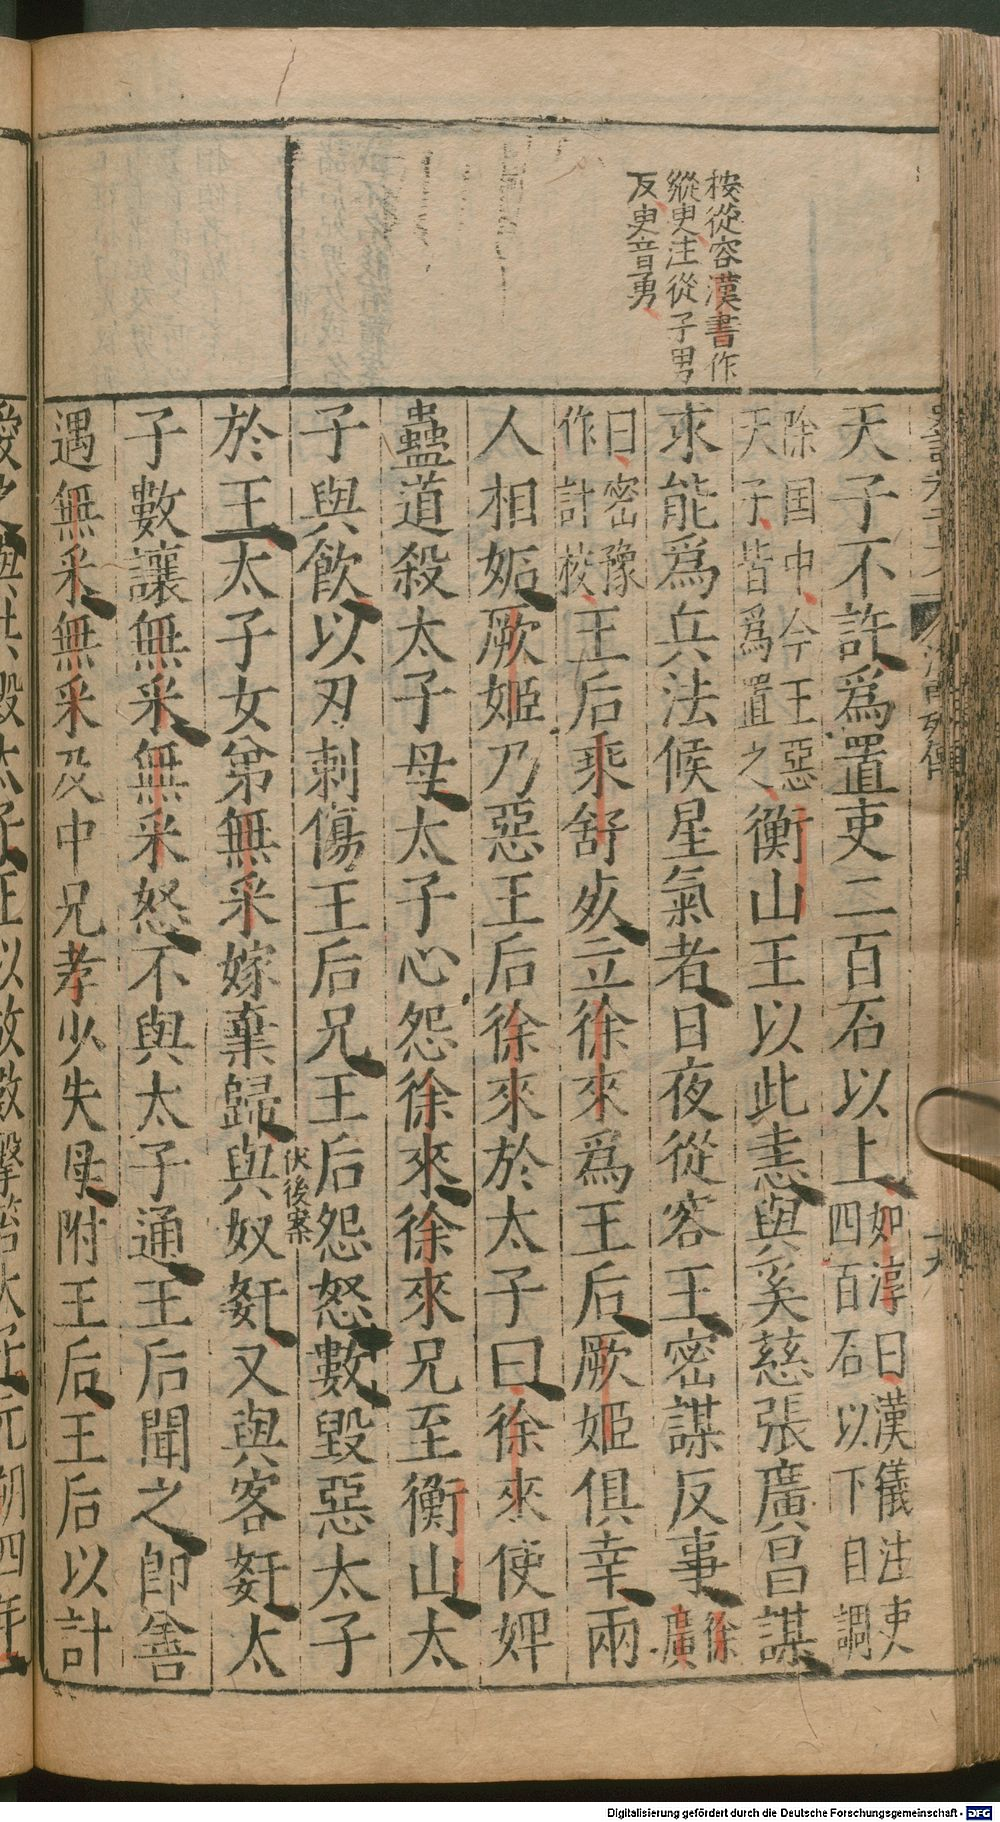 按從容漢書作
縱臾注從子男
反臾音勇
天子不許爲置吏二百石以上
如淳曰漢儀注吏
四百石以下自調
除国中今王惡
天子皆爲置之
衡山王以此恚與奚慈張廣昌謀
求能爲兵法候星氣者日夜從容王密謀反事
徐廣
曰密豫
作計校
王后乘舒死立徐來爲王后厥姬俱幸兩
人相妬厥姬乃惡王后徐來於太子曰徐來使婢
蠱道殺太子母太子心怨徐來徐來兄至衡山太
子與飲以刃刺傷王后兄王后怨怒數毀惡太子
伏後案
於王太子女弟無采嫁棄歸與奴姧又與客姧太
子數讓無采無采怒不與太子通王后聞之即善
遇無采無采及中兄孝少失母附王后王后以計
Digitalisierung gefördert durch die Deutsche Forschungsgemeinschaft - DFG